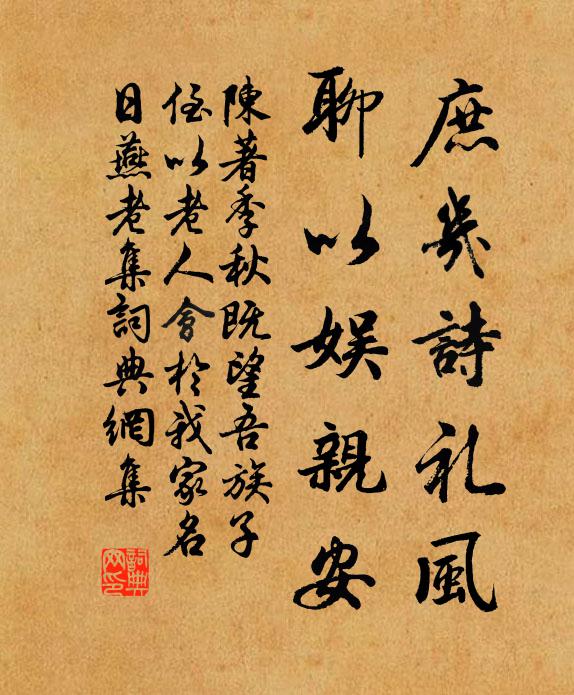 庶幾詩礼風
聊以娱親安
陳著季秋既望吾族子
侄以老人會於我家名
日燕老集詞典網集
詞典网印